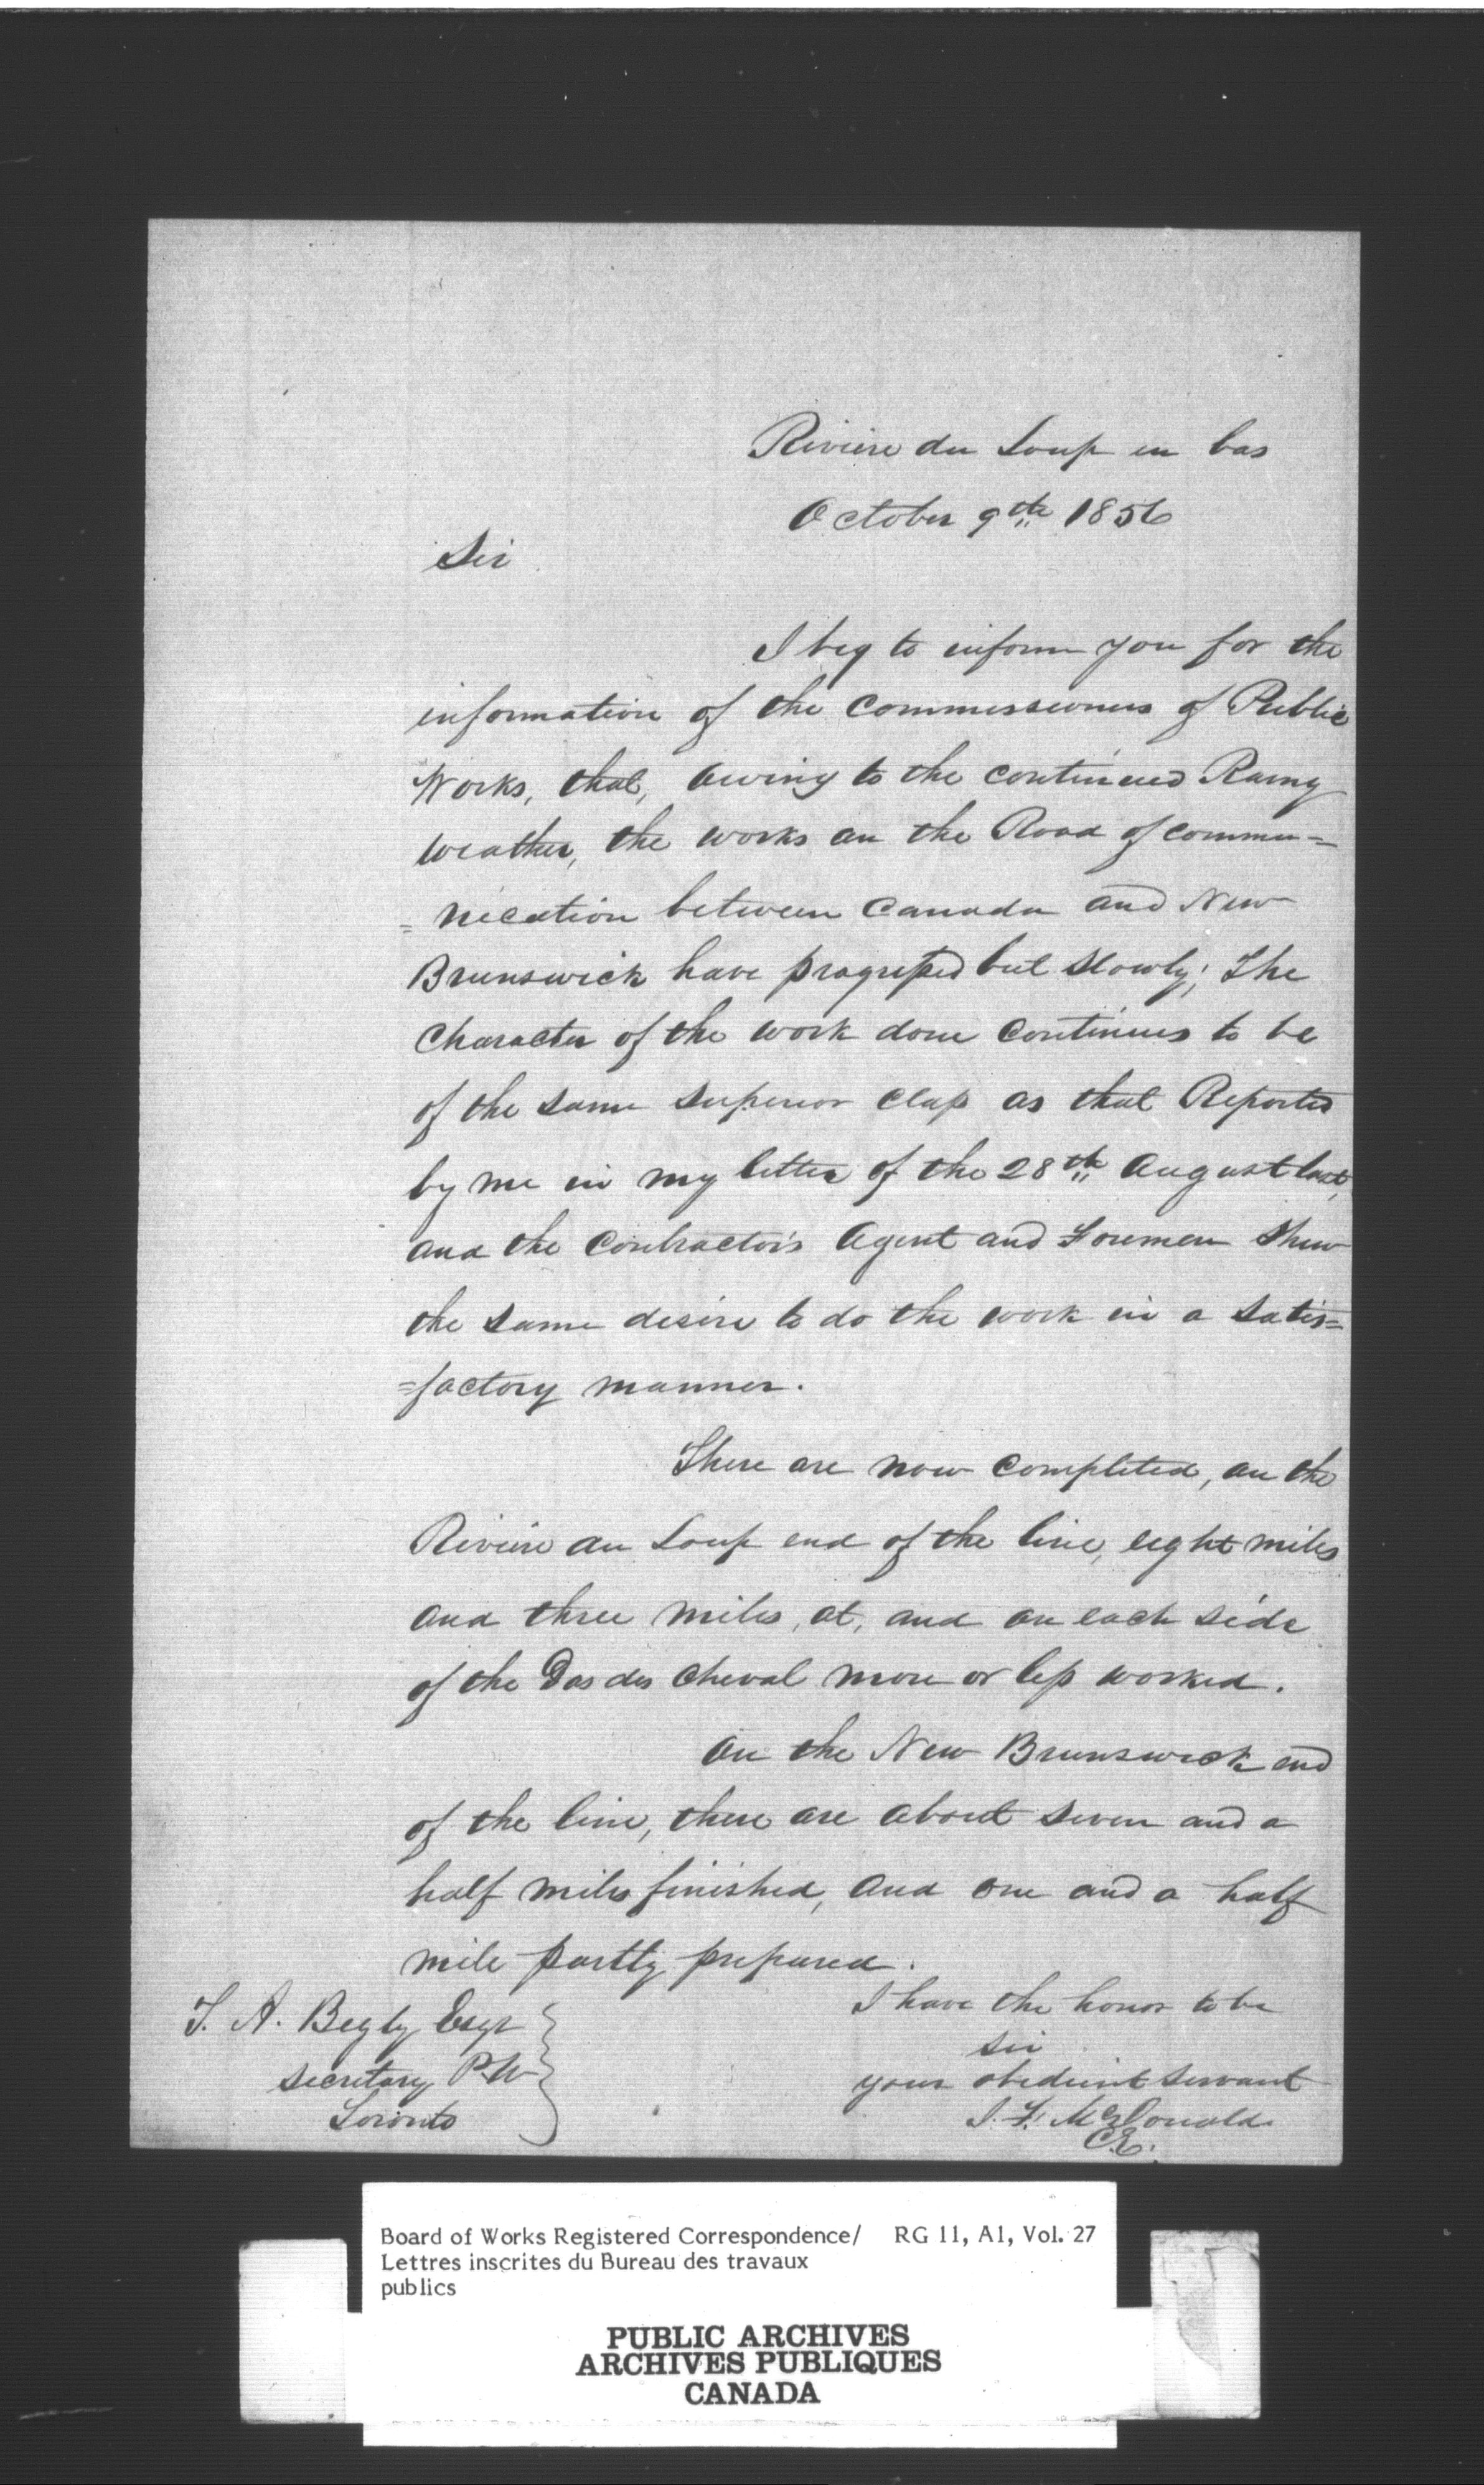 Riviere du Loup en bas
October 9th 1856
Sir
I beg to inform you for the
information of the Commissioners of Public
Works, that, owing to the continued Rainy
weather, the works on the Road of commu=
=nication between Canada and New
Brunswick have progressed but slowly; The
Character of the work done Continues to be
of the same superior class as that Reported
by me in my letter of the 28th August last,
and the Contractor's Agent and Foremen Shew
the same desire to do the work in a satis=
=factory manner.
There are now Completed, on the
Riviere au Loup end of the line, eight miles
and three miles, at, and on each side
of the Dos des Cheval more or less worked.
On the New Brunswick end
of the line, there are about seven and a
half miles finished, and one and a half
mile partly prepared.
I have the honor to be
Sir
your obedient servant
J. F. McDonald
C.E.
T. A. Begly Esqr
Secretary P.W
Toronto
Board of Works Registered Correspondence/ RG 11, A1, Vol. 27
Lettres inscrites du Bureau des travaux
publics
PUBLIC ARCHIVES
ARCHIVES PUBLIQUES
CANADA